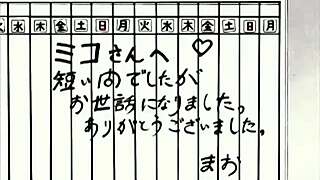 火水木金土日月火水木金土日月
ミコさんへ♡
短い間でしたが
お世話になりました。
ありがとうございました。
まお